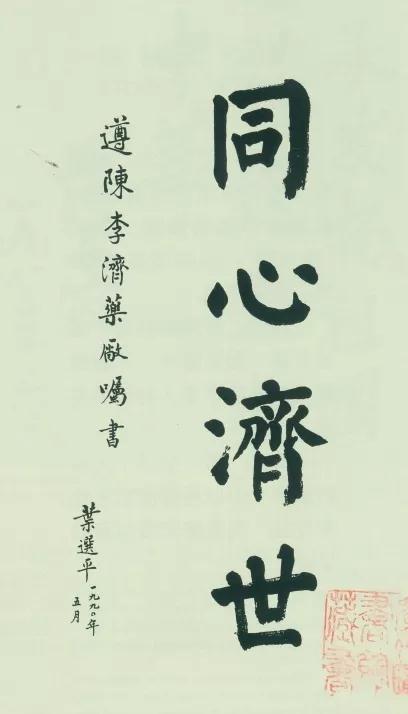 同心濟世
遵陳李濟藥廠囑書
葉選平
一九九〇年
五月